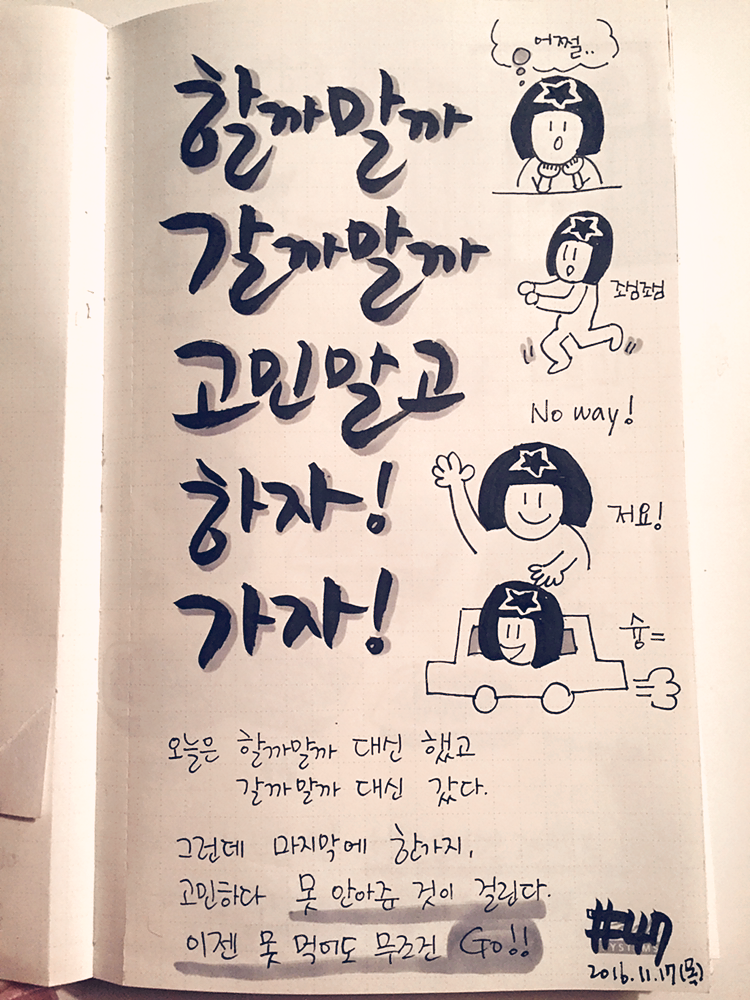 어쩔..
할까말까
갈까말까
조심조심
고민말고
No way!
하자!
저요!
가자!
슝=
오늘은 할까말까 대신 했고
갈까말까 대신 갔다.
그런데 마지막에 한가지,
고민하다 못 안아줌 것이 걸린다.
이젠 못 먹어도 무조건 Go!!
#47
YSTEMS
2016.11.17(목)